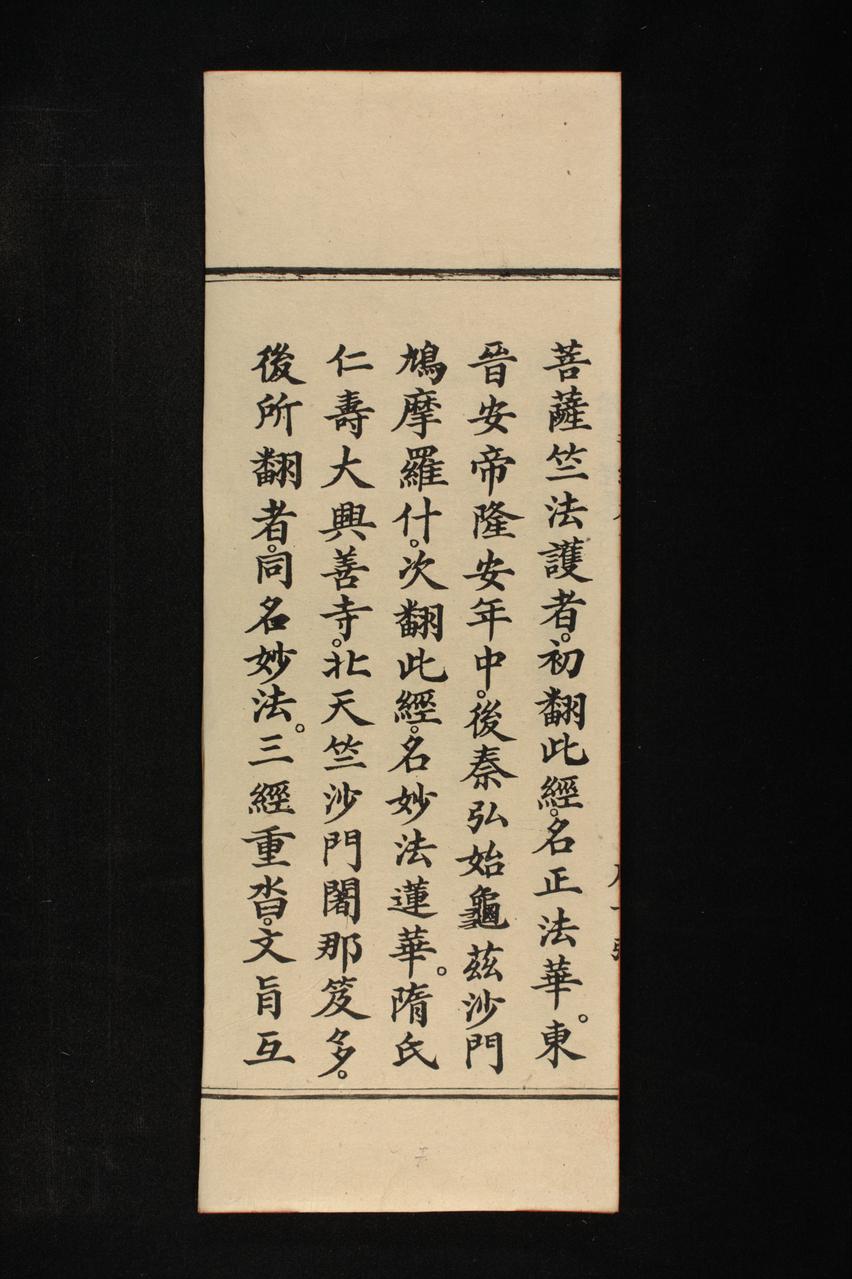 菩薩竺法護者。初翻此經。名正法華。東
晉安帝隆安年中。後秦弘始龜茲沙門
鳩摩羅什。次翻此經。名妙法蓮華。隋氏
仁壽大興善寺。北天竺沙門闍那笈多。
後所翻者。同名妙法。三經重沓。文旨互